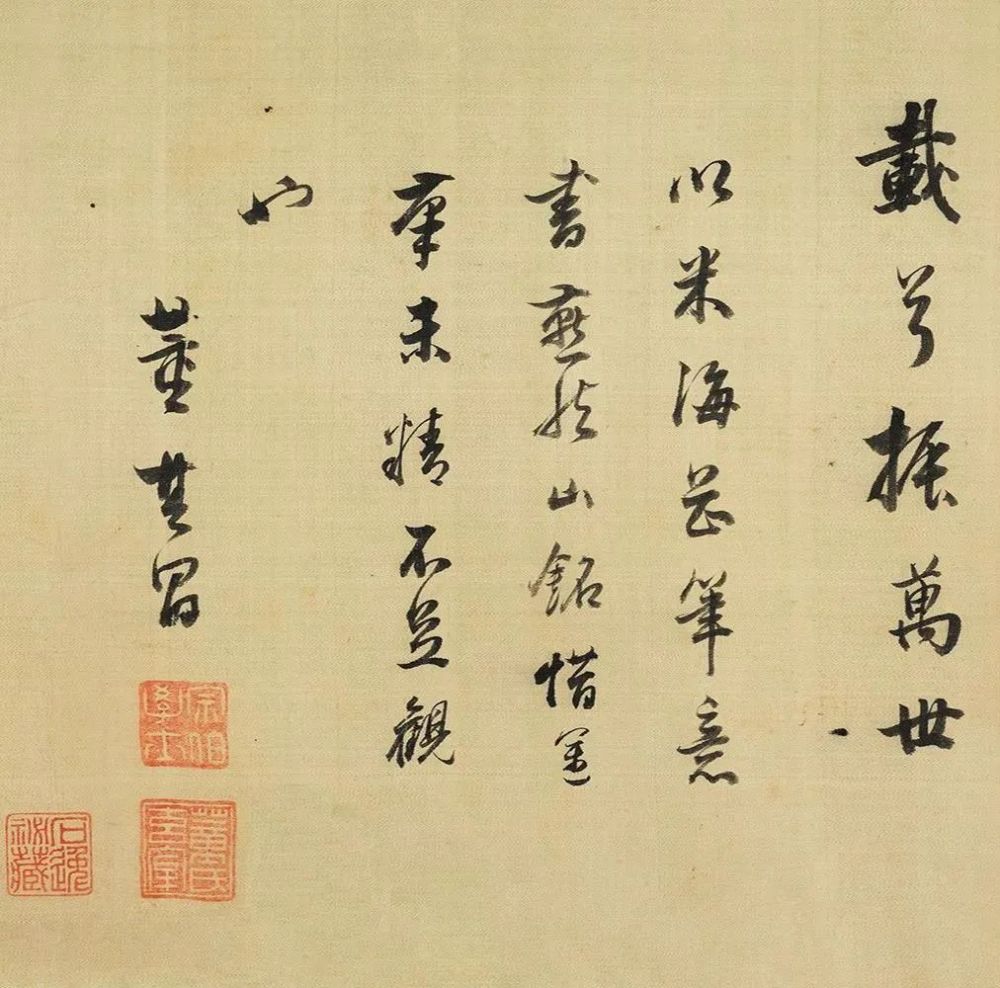 載兮振萬世
以米海岳筆意
書燕然山銘惜運
未精不足觀
也
董其昌
宗伯學士
董氏
石逸秘藏